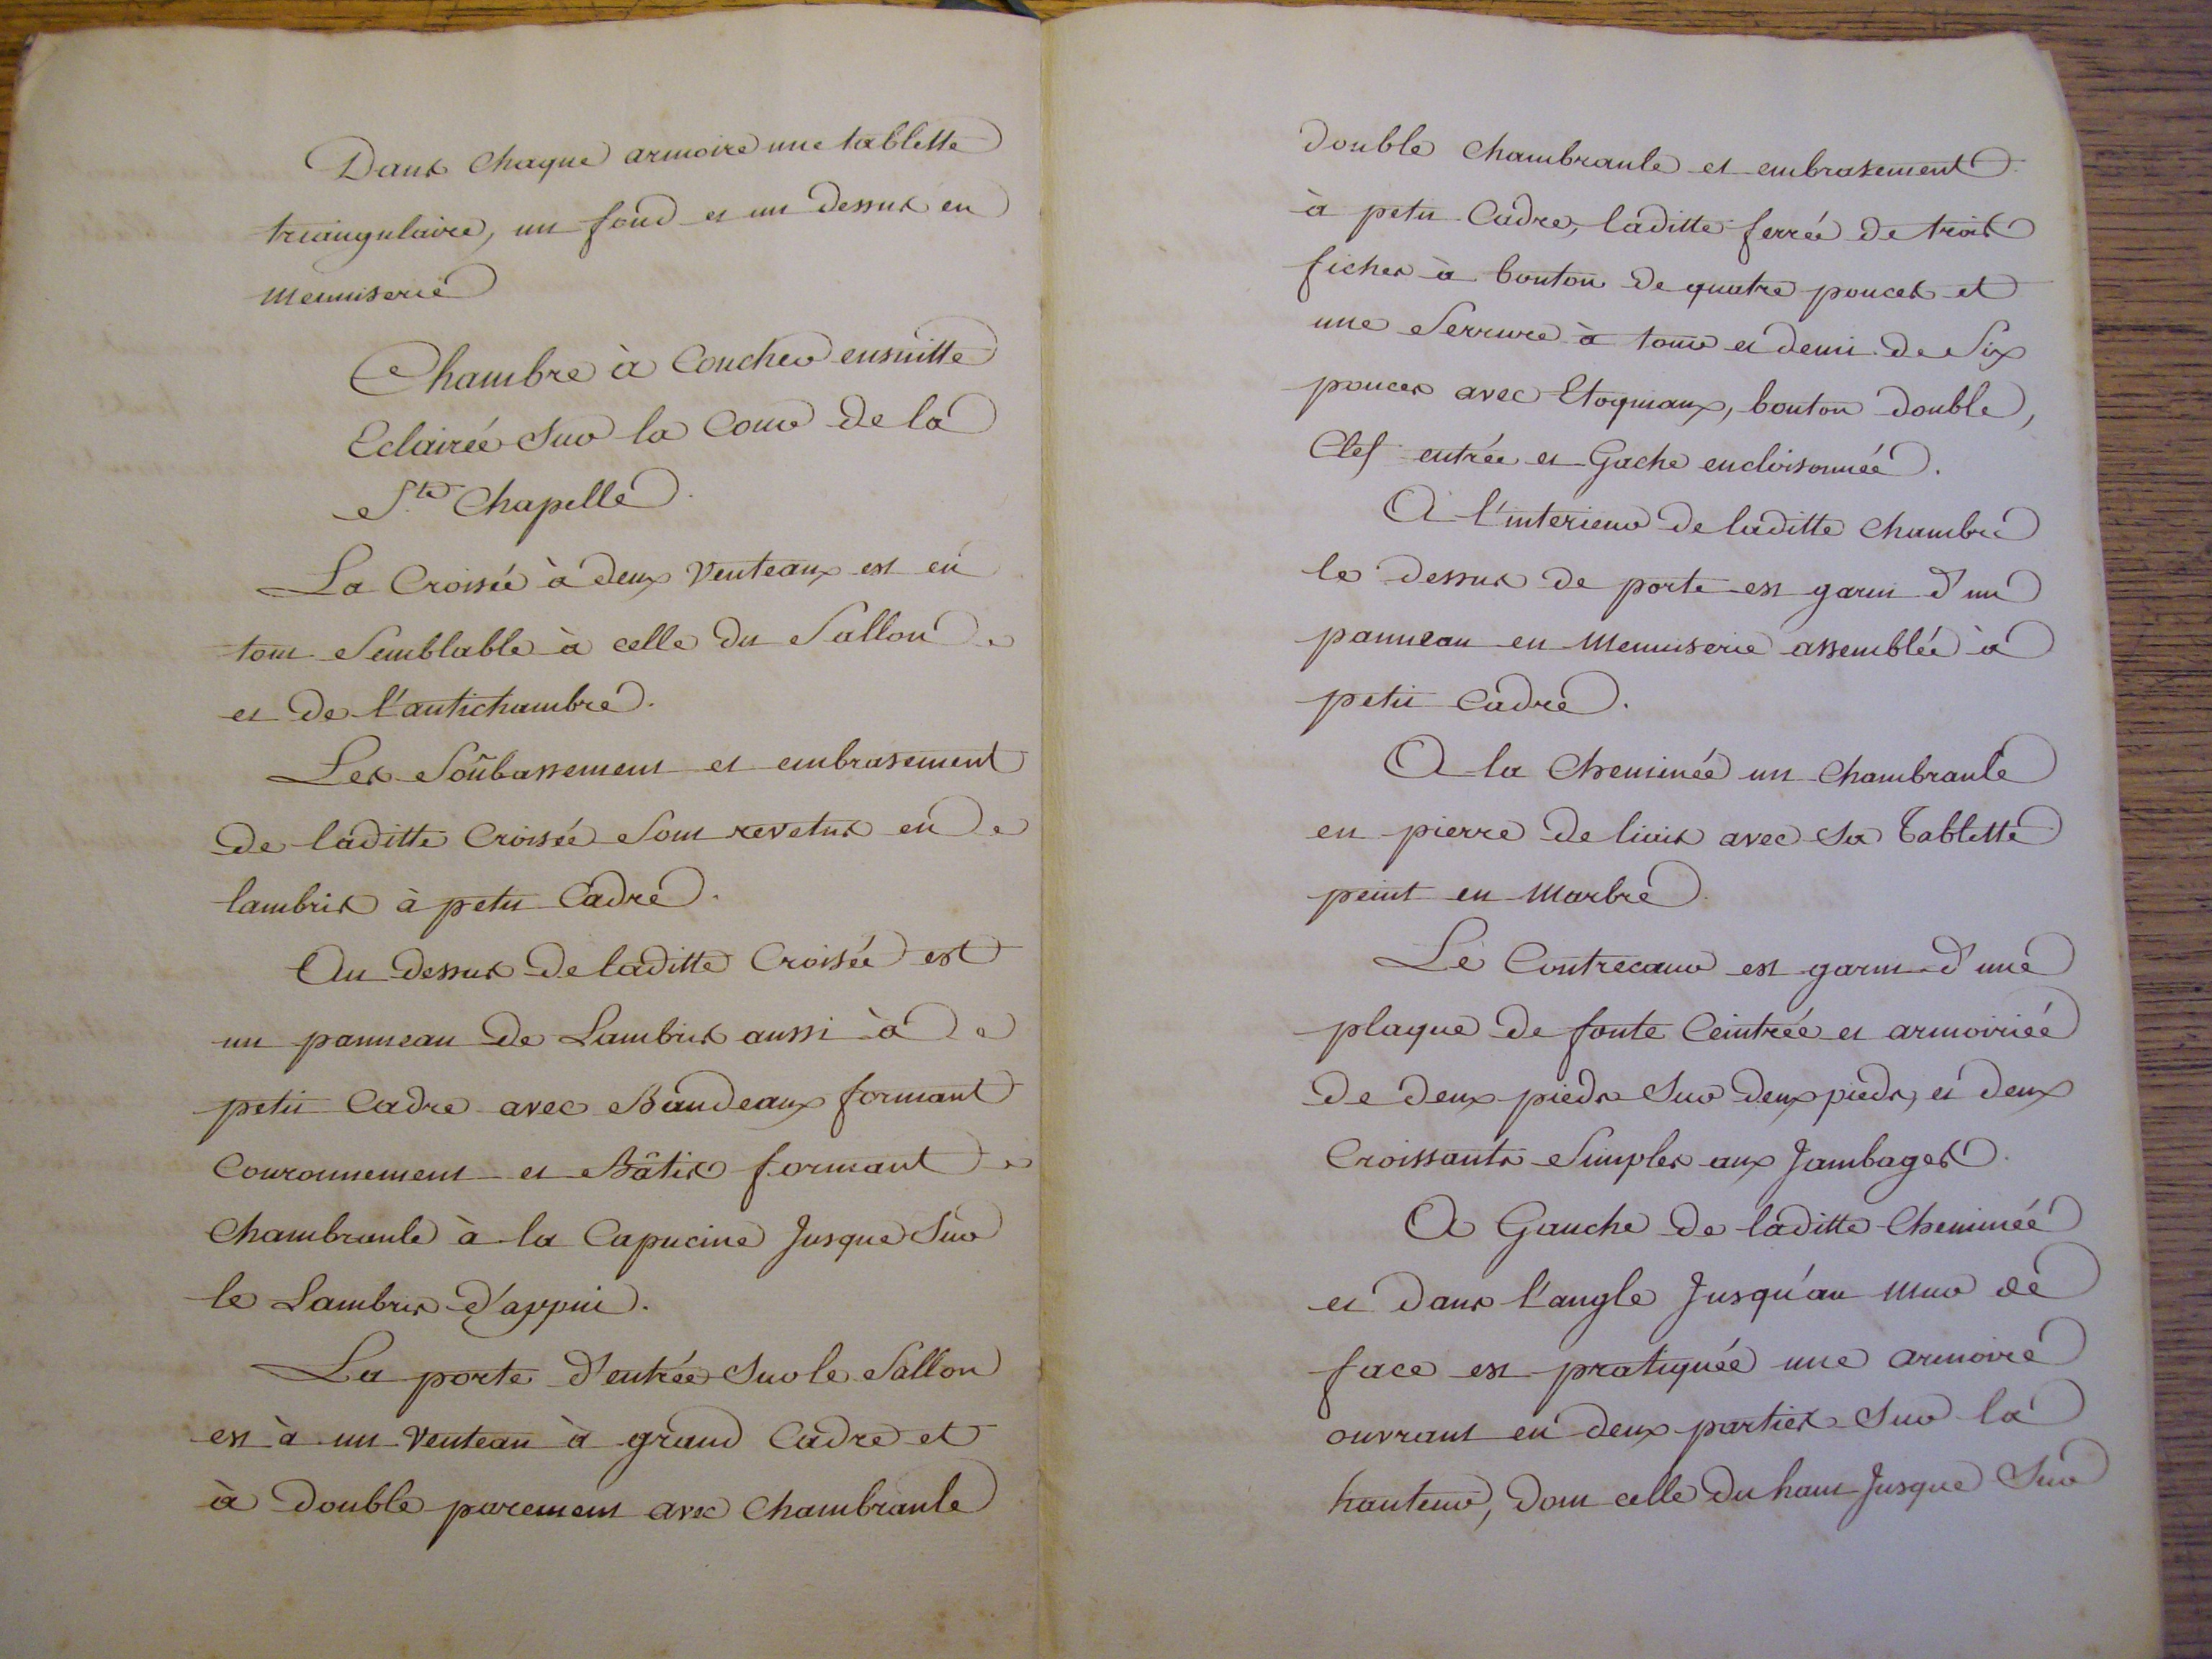 Dans chaque armoire une tablette
triangulaire, un fond et un dessus en
menuiserie
Chambre à Coucher ensuitte
Eclairée Sur la Cour de la
Ste. Chapelle.
La Croisée à deux Venteaux est en
tout Semblable à celle du Sallon
et de l'antichambre.
Les Soûbassement et embrasement
de laditte Croisée Sont revetus en
lambris à petit Cadre.
Au dessus de laditte Croisée est
un panneau de Lambris aussi à
petit Cadre avec Bandeaux formant
Couronnement et Bâtis formant
Chambranle à la Capucine Jusque Sur
le Lambris d'appui.
La porte d'entrée Sur le Sallon
est à un Venteau à grand Cadre et
à double parement avec Chambranle
double Chambranle et embrasement
à petit Cadre, laditte ferrée de trois
fiches à bouton de quatre pouces et
une Serrure à tour et demi de Six
pouces avec Etoquiaux, bouton double,
Clef entrée et Gache encloisonnée.
A l'interieur de laditte Chambre
le dessus de porte est garni d'un
panneau en Menuiserie assemblée à
petit Cadre.
A la Cheminée un Chambranle
en pierre de liais avec Sa Tablette
peint en Marbre.
Le Contrecœur est garni d'une
plaque de fonte Ceintrée et armoiriée
de deux pieds Sur deux pieds, et deux
Croissants Simples aux Jambages.
A Gauche de laditte Cheminée
et dans l'angle Jusqu'au Mur de
face est pratiquée une armoire
ouvrant en deux parties Sur la
hauteur, dont celle du haut Jusque Sur